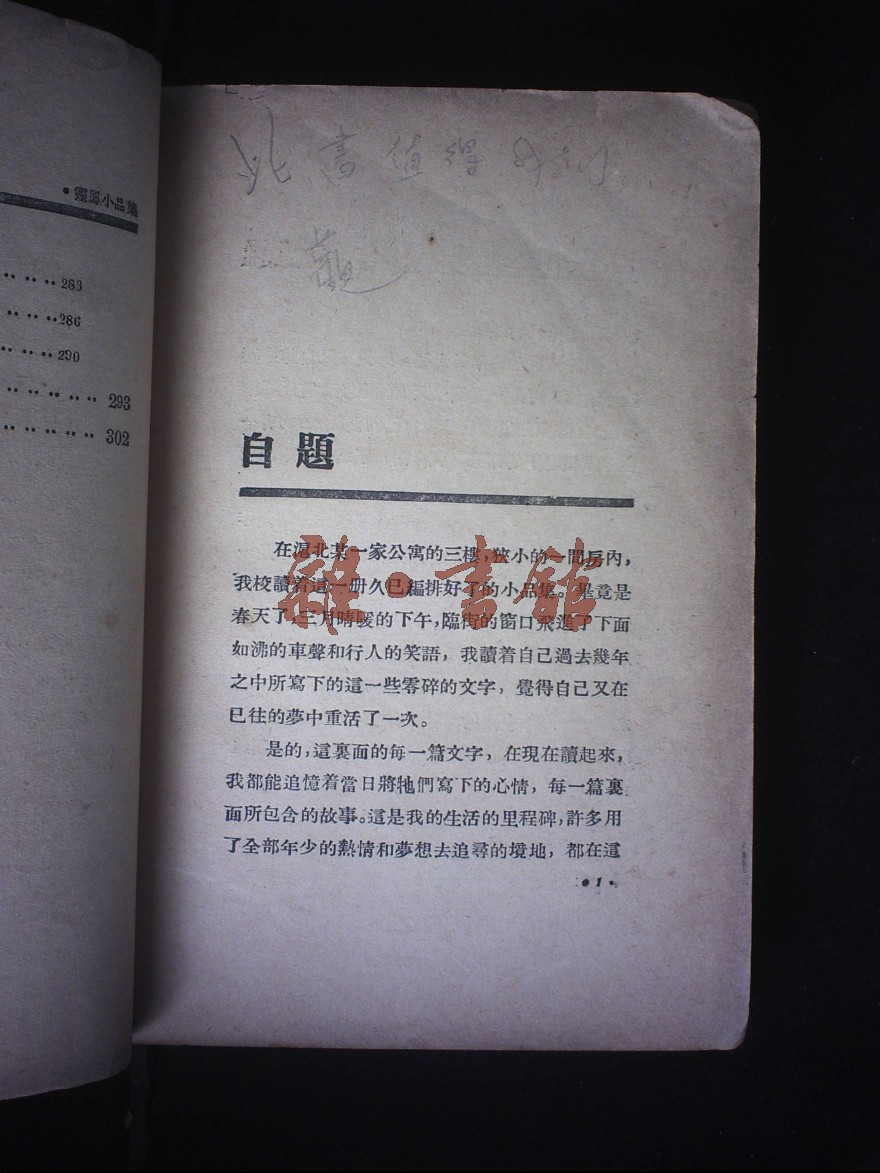 • 靈鳳小品集
·· ·· ··283
·· ·· ··286
·· ·· ··290
·· ·· ·· ·· ·· 293
·· ·· ·· ·· ·· 302
此書值得
觀
自題
在滬北某一家公寓的三樓,狹小的一間房內,
我校讀着這一册久已編排好了的小品集。畢竟是
春天了,三月晴暖的下午,臨街的窗口飛進了下面
如沸的車聲和行人的笑語,我讀着自己過去幾年
之中所寫下的這一些零碎的文字,覺得自己又在
已往的夢中重活了一次。
是的,這裏面的每一篇文字,在現在讀起來,
我都能追憶着當日將牠們寫下的心情,每一篇裏
面所包含的故事。這是我的生活的里程碑,許多用
了全部年少的熱情和夢想去追尋的境地,都在這
• 1 •
雜·書館